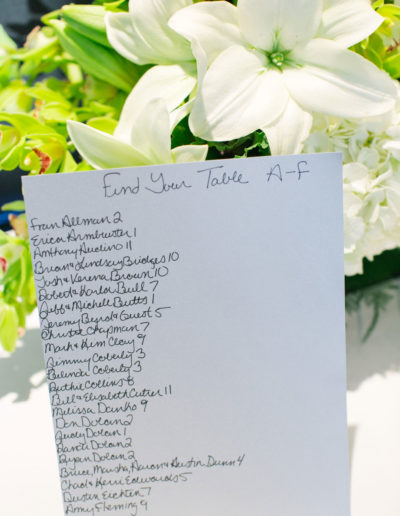 Find Your Table A-F
Fran Allman 2
Erica Armbruster 1
Anthony Avolino 11
Brian & Lindsay Bridges 10
Josh & Verena Brown 10
Robert & Karla Bull 7
Jeff & Michell Butts 1
Jeremy Byrd & Guest 5
Christa Chapman 7
Mark & Kim Clay 9
Jimmy Coberly 3
Belinda Coberly 3
Ruthie Collins 6
Bill & Elisabeth Cutrer 11
Melissa Danko 9
Don Dolan 2
Judy Dolan 1
Dolan 2
Ryan Dolan 2
Bruce, Marsha, Aaron & Austin Dunn 4
Chad & Kerri Edwards 5
Dustin Eichten 7
Amy Fleming 9